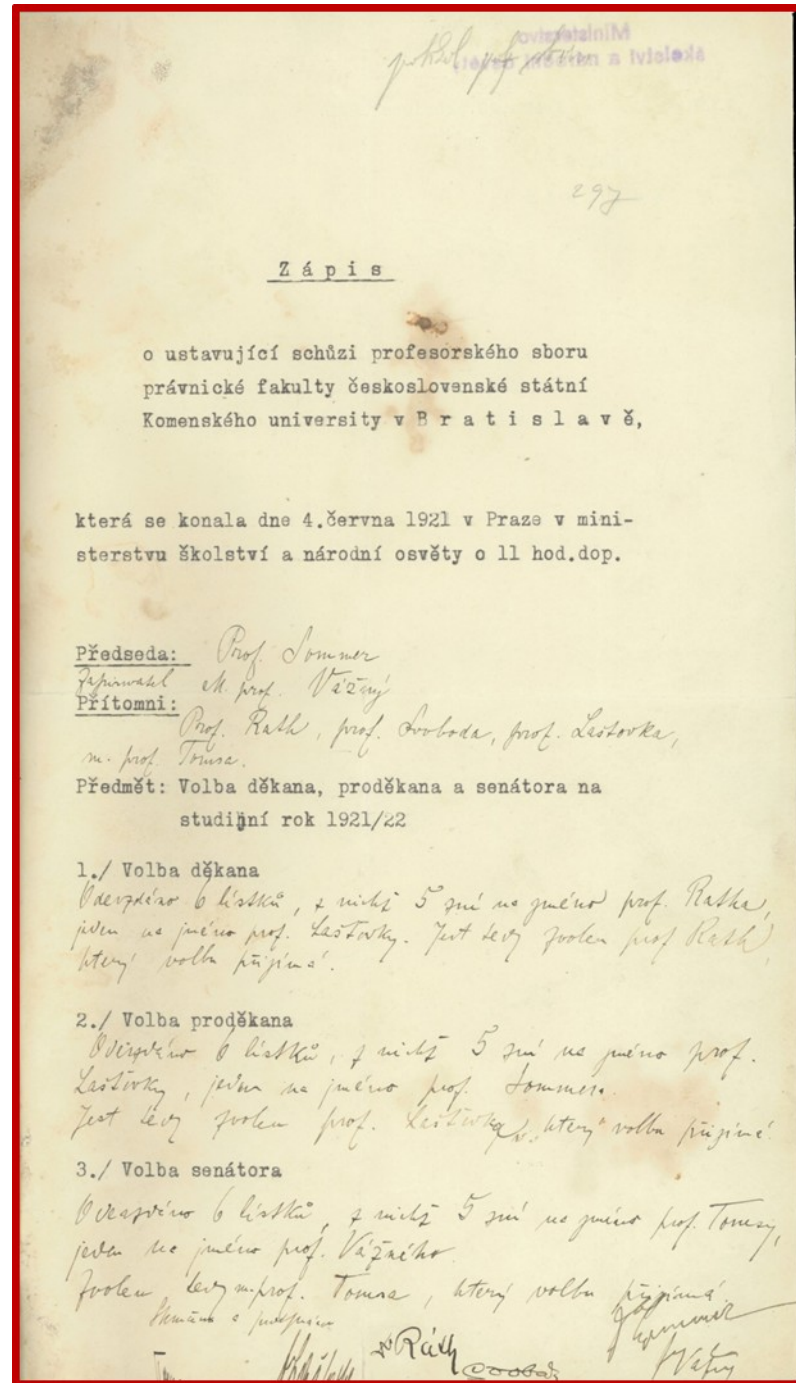 297
Zápis
o ustavující schůzi profesorského sboru
právnické fakulty československé státní
Komenského university v Bratislavě,
která se konala dne 4.června 1921 v Praze v mini-
sterstvu školství a národní osvěty o 11 hod.dop.
Předseda: Prof. Sommer
Zapisovatel M. prof. Vážný
Přítomni:
Prof. Rath, prof. Svoboda, prof. Laštovka,
m. prof. Tomsa.
Předmět: Volba děkana, proděkana a senátora na
studijní rok 1921/22
1./ Volba děkana
Odevzdáno 6 lístků, z nichž 5 zní na jméno prof. Ratha,
jeden na jméno prof. Laštovky. Jest tedy zvolen prof Rath,
který volbu přijímá.
2./ Volba proděkana
Odevzdáno 6 lístků, z nichž 5 zní na jméno prof.
Laštovky, jeden na jméno prof. Sommera.
Jest tedy zvolen prof. Laštovka, který volbu přijímá.
3./ Volba senátora
Odevzdáno 6 lístků, z nichž 5 zní na jméno prof. Tomsy,
jeden na jméno prof. Vážného.
Zvolen tedy m.prof. Tomsa, který volbu přijímá.
Skončeno a podepsáno
Sommer
Ráth
Vážný